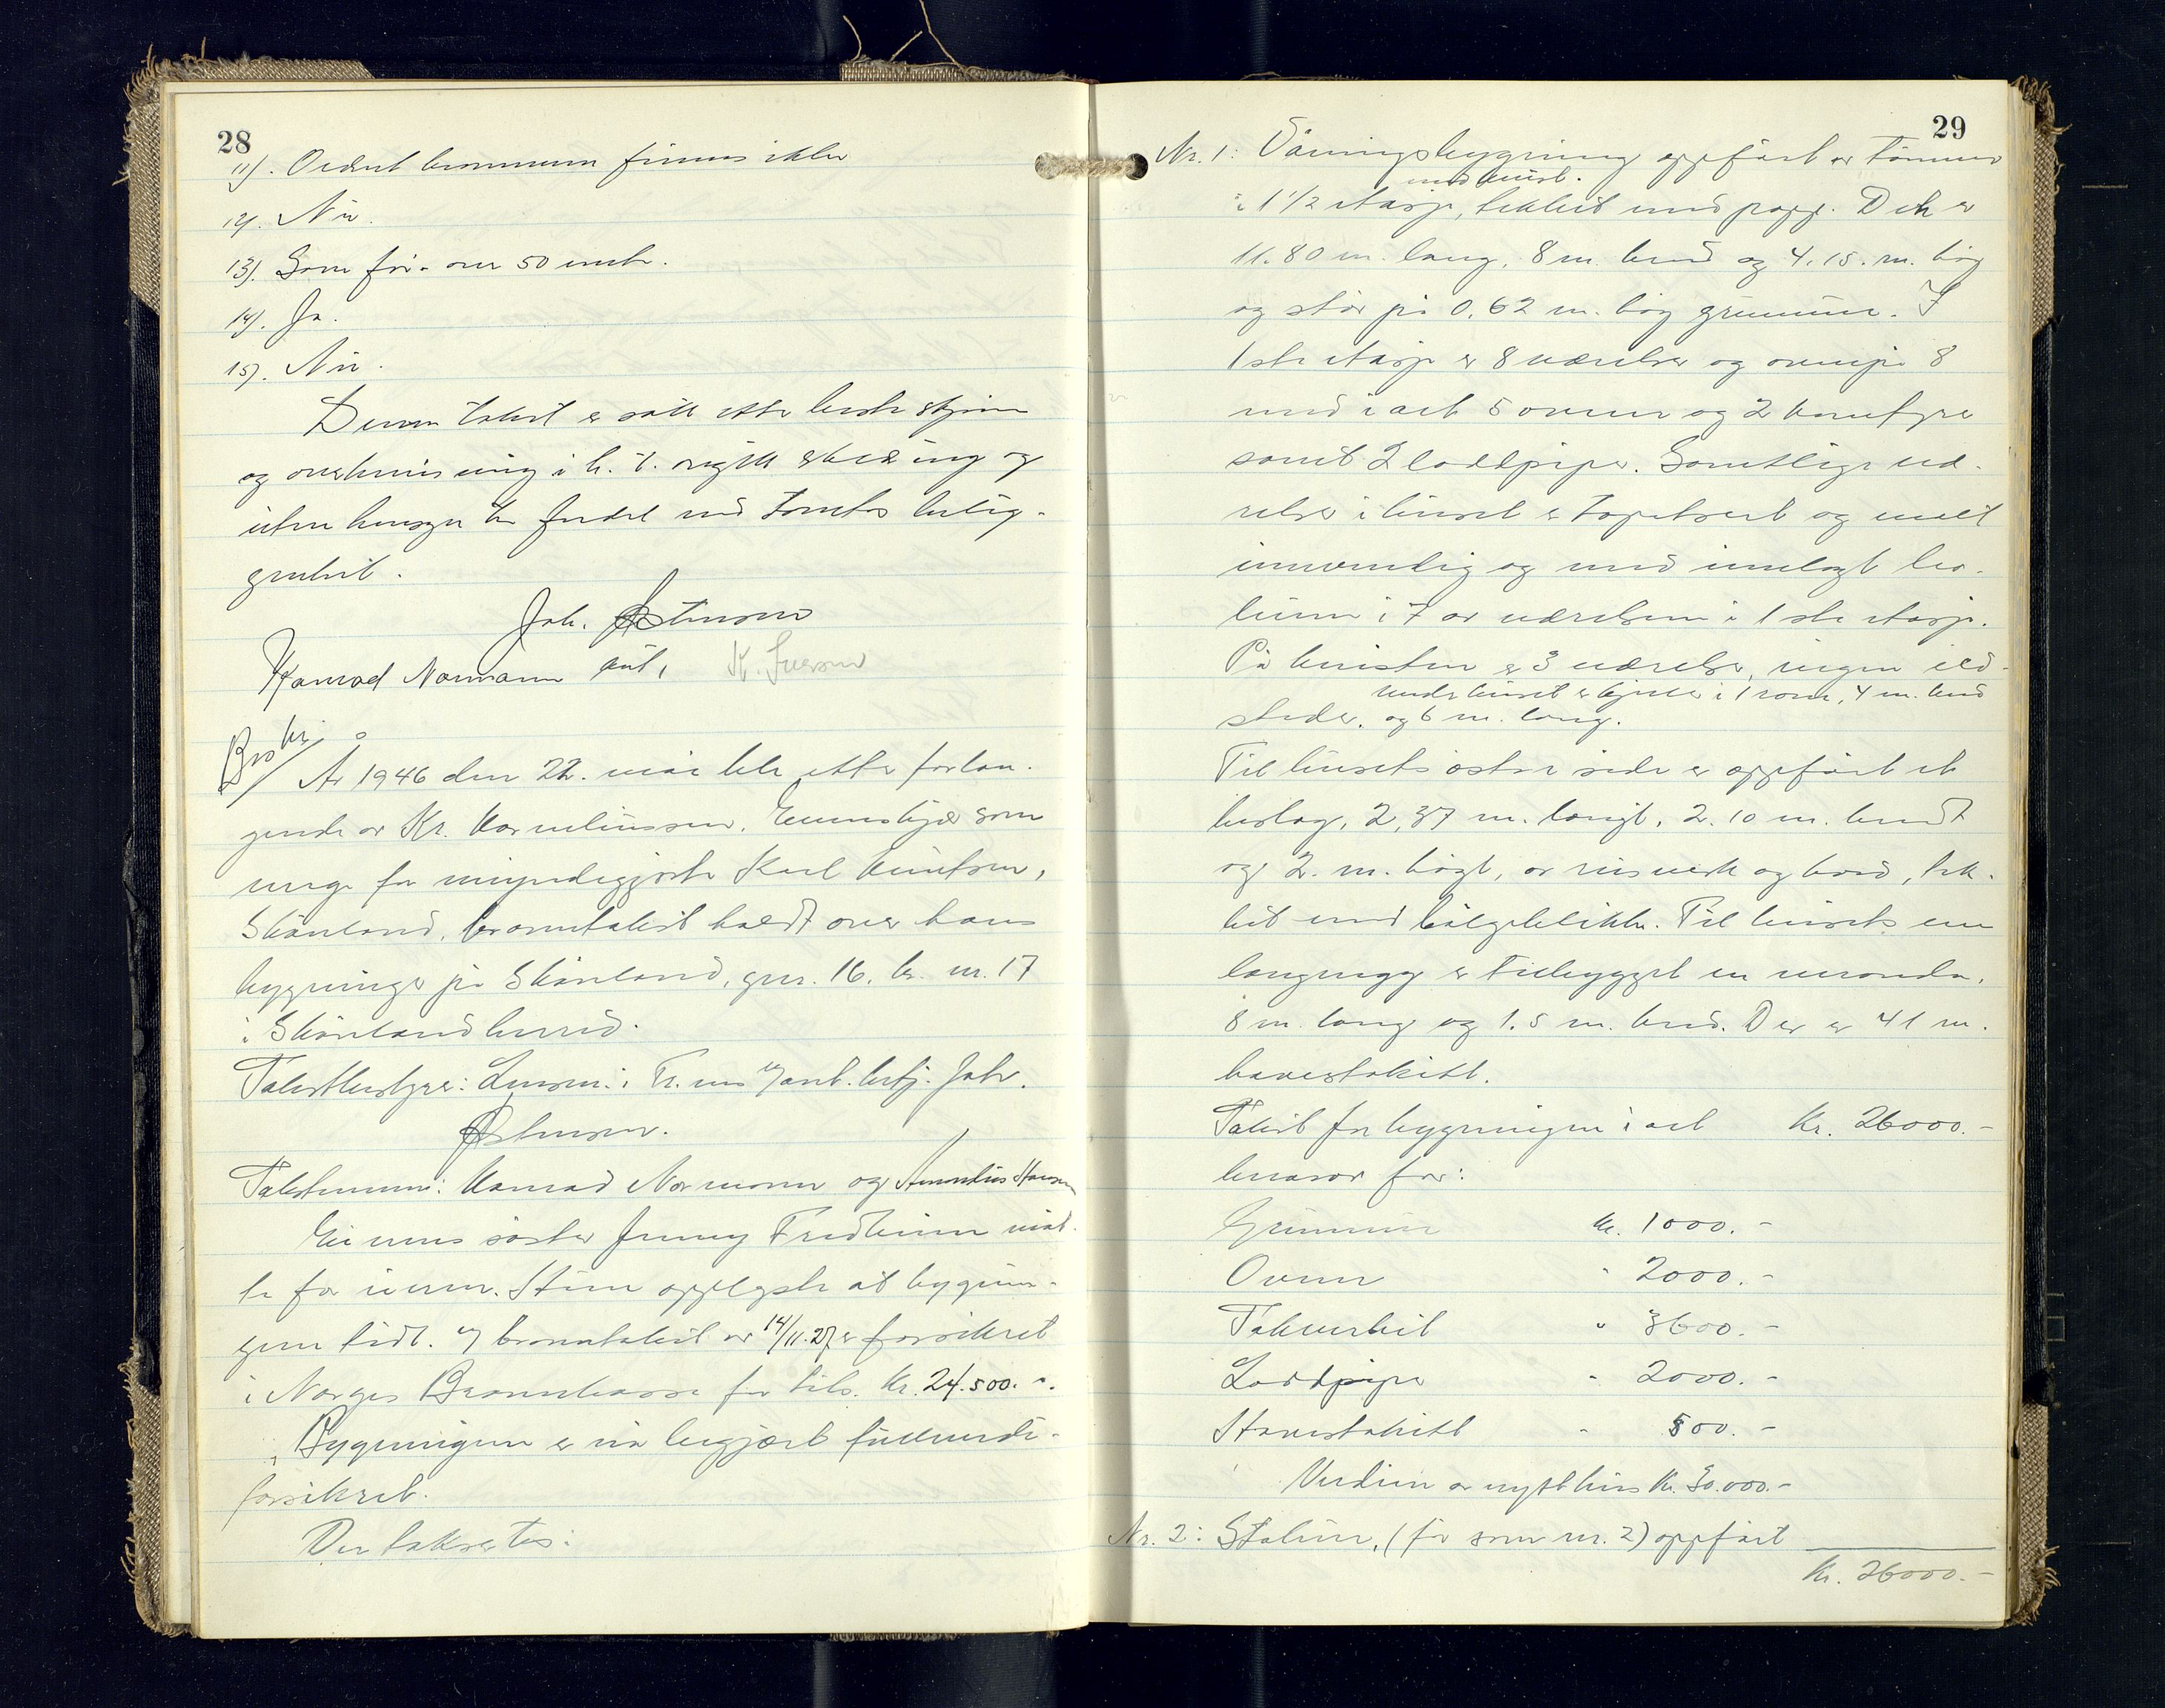 28
11). Ordnet brannvern finnes ikke
12). Nei.
13). Som før - over 50 meter.
14). Ja.
15). Nei.
Denne takst er satt etter beste skjønn
og overbevisning i h. t. avgitt erklæring og
uten hensyn til fordel ved tomtens belig-
genhet.
Joh. Østensen
Konrad Normann
K. Iversen
År 1946 den 22. mai ble etter forlan-
gende av Kr. Kornelinssen, Evenskjer som
verge for umyndiggjorte Karl Knutsen,
Skånland, branntakst holdt over hans
bygninger på Skånland, gnr. 16, br. nr. 17
i Skånland herred.
Takstbestyrer: Lensm. i Tr.nes v/ ant. betj. Joh.
Østensen.
Takstmenn: Konrad Normann og Hansen
Eierens søster Jenny Fredheim møt-
te for eieren. Hun opplyste at bygnin-
gene tidl. v/ branntakst av 14/11.27 er forsikret
i Norges Brannkasse for tils. kr. 24.500.-.
Bygningene er nå begjært fullverdi-
forsikret.
Der taksertes:
29
Nr. 1: Våningsbygning oppført av tømmer
med kvist.
i 1 1/2 etasje, tekket med papp. Den er
11.80 m. lang, 8 m. bred og 4.15. m. høy
og står på 0,62 m. høy grunnmur. I
1ste etasje er 8 værelser og ovenpå 8
med i alt 5 ovner og 2 komfyrer
samt 2 loddpiper. Samtlige væ-
relser i huset er tapetsert og malt
innvendig og med innlagt lino-
leum i 7 av værelsene i 1ste etasje.
På kvisten er 3 værelser, ingen ild-
under huset er kjeller i 1 rom, 4 m. bred
steder. og 6 m. lang.
Til husets østre side er oppført et
bislag, 2,37 m. langt, 2.10 m. bredt
og 2. m. høgt, av reisverk og bord, tek-
ket med bølgeblikk. Til husets ene
langvegg er tilbygget en veranda,
8 m. lang og 1.5 m. bred. Der er 41 m.
havestakitt.
Takst for bygningen i alt Kr. 26000.-
herav for:
Grunnmur kr. 1000.-
Ovner " 2000.-
Takverket " 3600.-
Loddpiper " 2000.-
Havestakitt " 500.-
Verdien av nytt hus kr. 30.000.-
Nr. 2: Stallen, (før som nr. 2) oppført
Kr. 26000.-